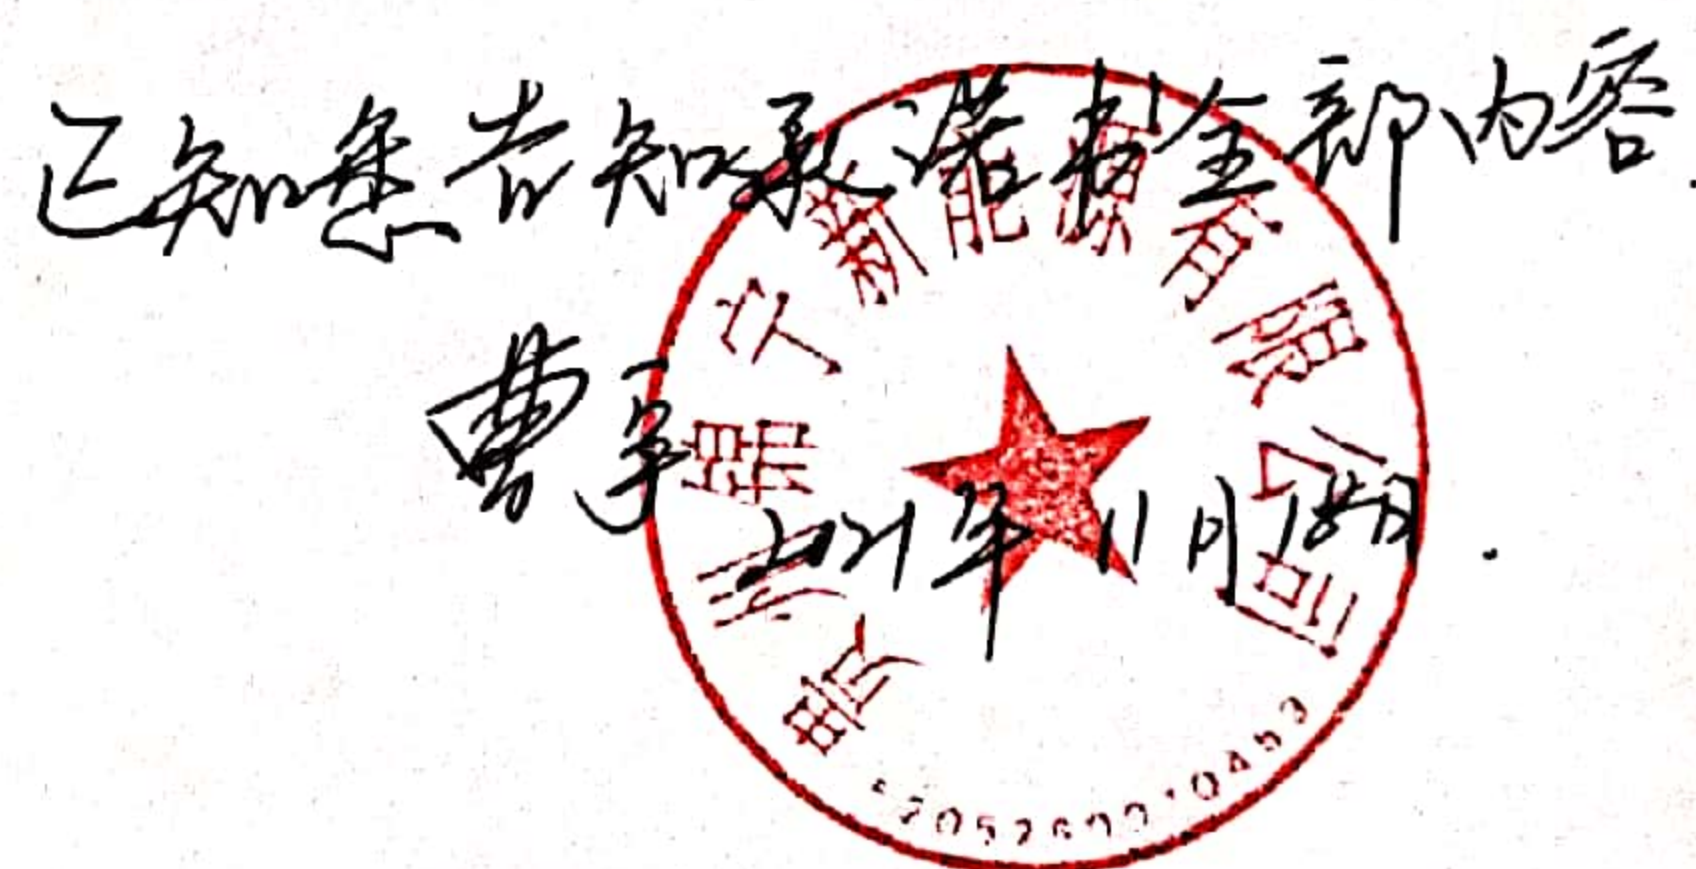 已知悉告知承诺书全部内容.
曹军
2021年11月18日.
贵州锦宁新能源有限公司